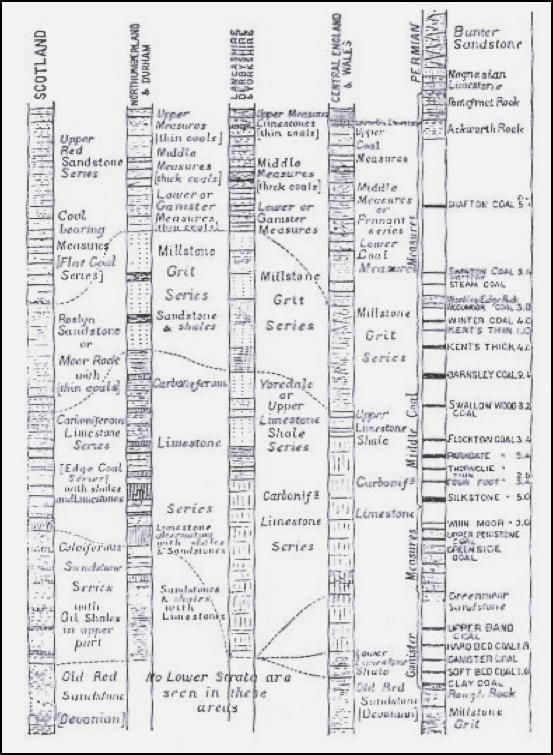 SCOTLAND
Upper
Red
Sandstone
Series
Coal
bearing
Measures
[Flat Coal
Series]
Roslyn
Sandstone
or
Moor Rock
with
[thin coals]
Carboniferous
Limestone
Series
[Edge Coal
Series]
with shales
and Limestones
Calciferous
Sandstone
Series
with
Oil Shales
in upper
part
Old Red
Sandstone
[Devonian]
NORTHUMBERLAND
& DURHAM
Upper
Measures
[thin coals]
Middle
Measures
[thick coals]
Lower or
Ganister
Measures
[thin coals]
Millstone
Grit
Series
Sandstone
& shales
Carboniferous
Limestone
Series
Limestone
alternating
with shales
& Sandstones
Sandstones
& shales
with
Limestones
No Lower Strata are
seen in these
areas
LANCASHIRE
DERBYSHIRE
& YORKSHIRE
Upper Measures
Limestones
[thin coals]
Middle
Measures
[thick coals]
Lower or
Ganister
Measures
Millstone
Grit
Series
Yoredale
or
Upper
Limestone
Shale
Series
Carbonifs
Limestone
Series
CENTRAL ENGLAND
& WALES
Upper
Coal
Measures
Middle
Measures
or
Pennant
series
Lower
Coal
Measures
Millstone
Grit
Series
Upper
Limestone
Shale
Carbonifs
Limestone
Lower
Limestone
Shale
Old Red
Sandstone
[Devonian]
PERMIAN
Bunter
Sandstone
Magnesian
Limestone
Pontefract Rock
Ackworth Rock
Middle Coal Measures
SHAFTON COAL
STEAM COAL
WINTER COAL 4.0
KENT'S THIN
KENT'S THICK
BARNSLEY COAL 9.4
SWALLOW WOOD 3.2
COAL
FLOCKTON COAL 3.4
PARKGATE " 5.4
THORNCLIFFE "
THIN
FOUR FOOT "
SILKSTONE " 5.0
Ganister Measures
WHIN MOOR " 3.0
UPPER PENISTONE
COAL
GREENSIDE
COAL
Greenmoor
Sandstone
UPPER BAND
COAL
HARD BED COAL
GANISTER COAL
SOFT BED COAL 1.6
CLAY COAL
Rough Rock
Millstone
Grit